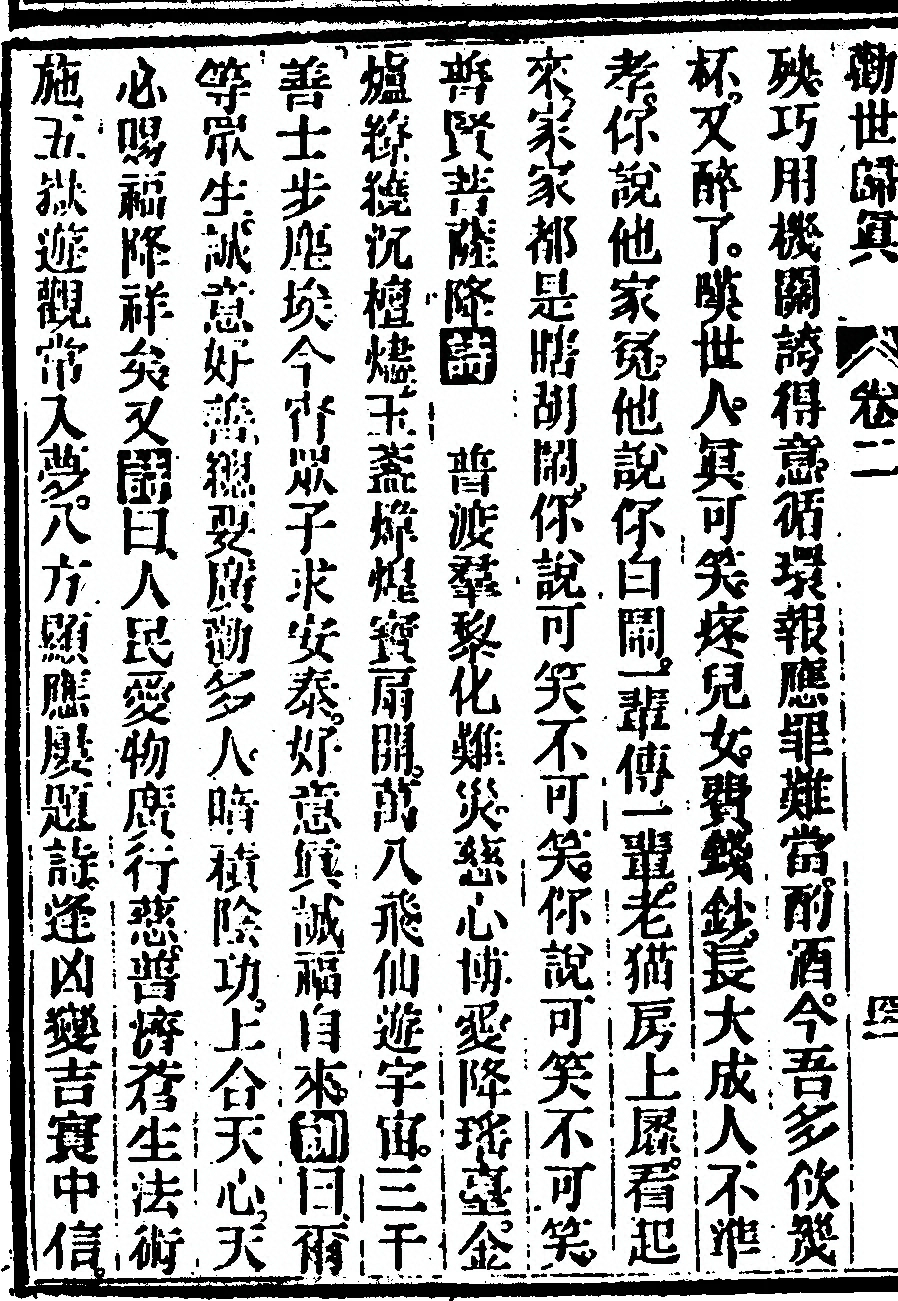 勸世歸眞 卷二 四
殃巧用機關誇得意循環報應罪難當酌酒今吾多飲幾
杯又醉了嘆世人眞可笑疼兒女費錢鈔長大成人不準
孝你說他家冤他說你白鬧一輩傳一輩老猫房上屜看起
來家家都是瞎胡鬧你說可笑不可笑你說可笑不可笑
普賢菩薩降詩 普渡羣黎化難災慈心博愛降瑤臺金
爐繚繞沉檀燼玉盞煒煌寶扇開萬八飛仙遊宇宙三千
善士步塵埃今宵眾子求安泰好意眞誠福自來訓曰爾
等眾生誠意好善總要廣勸多人暗積陰功上合天心天
必賜福降祥矣又詞曰人民愛物廣行慈普濟蒼生法術
施五嶽遊觀常入夢八方顯應屢題詩逢凶變吉寰中信